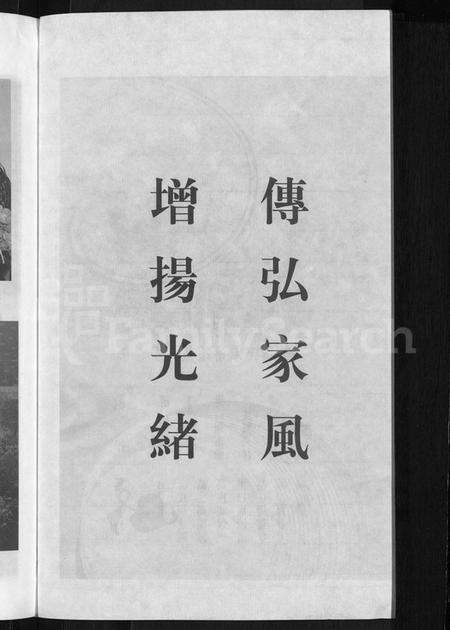 傳弘家風
增揚光緒
FamilySearch